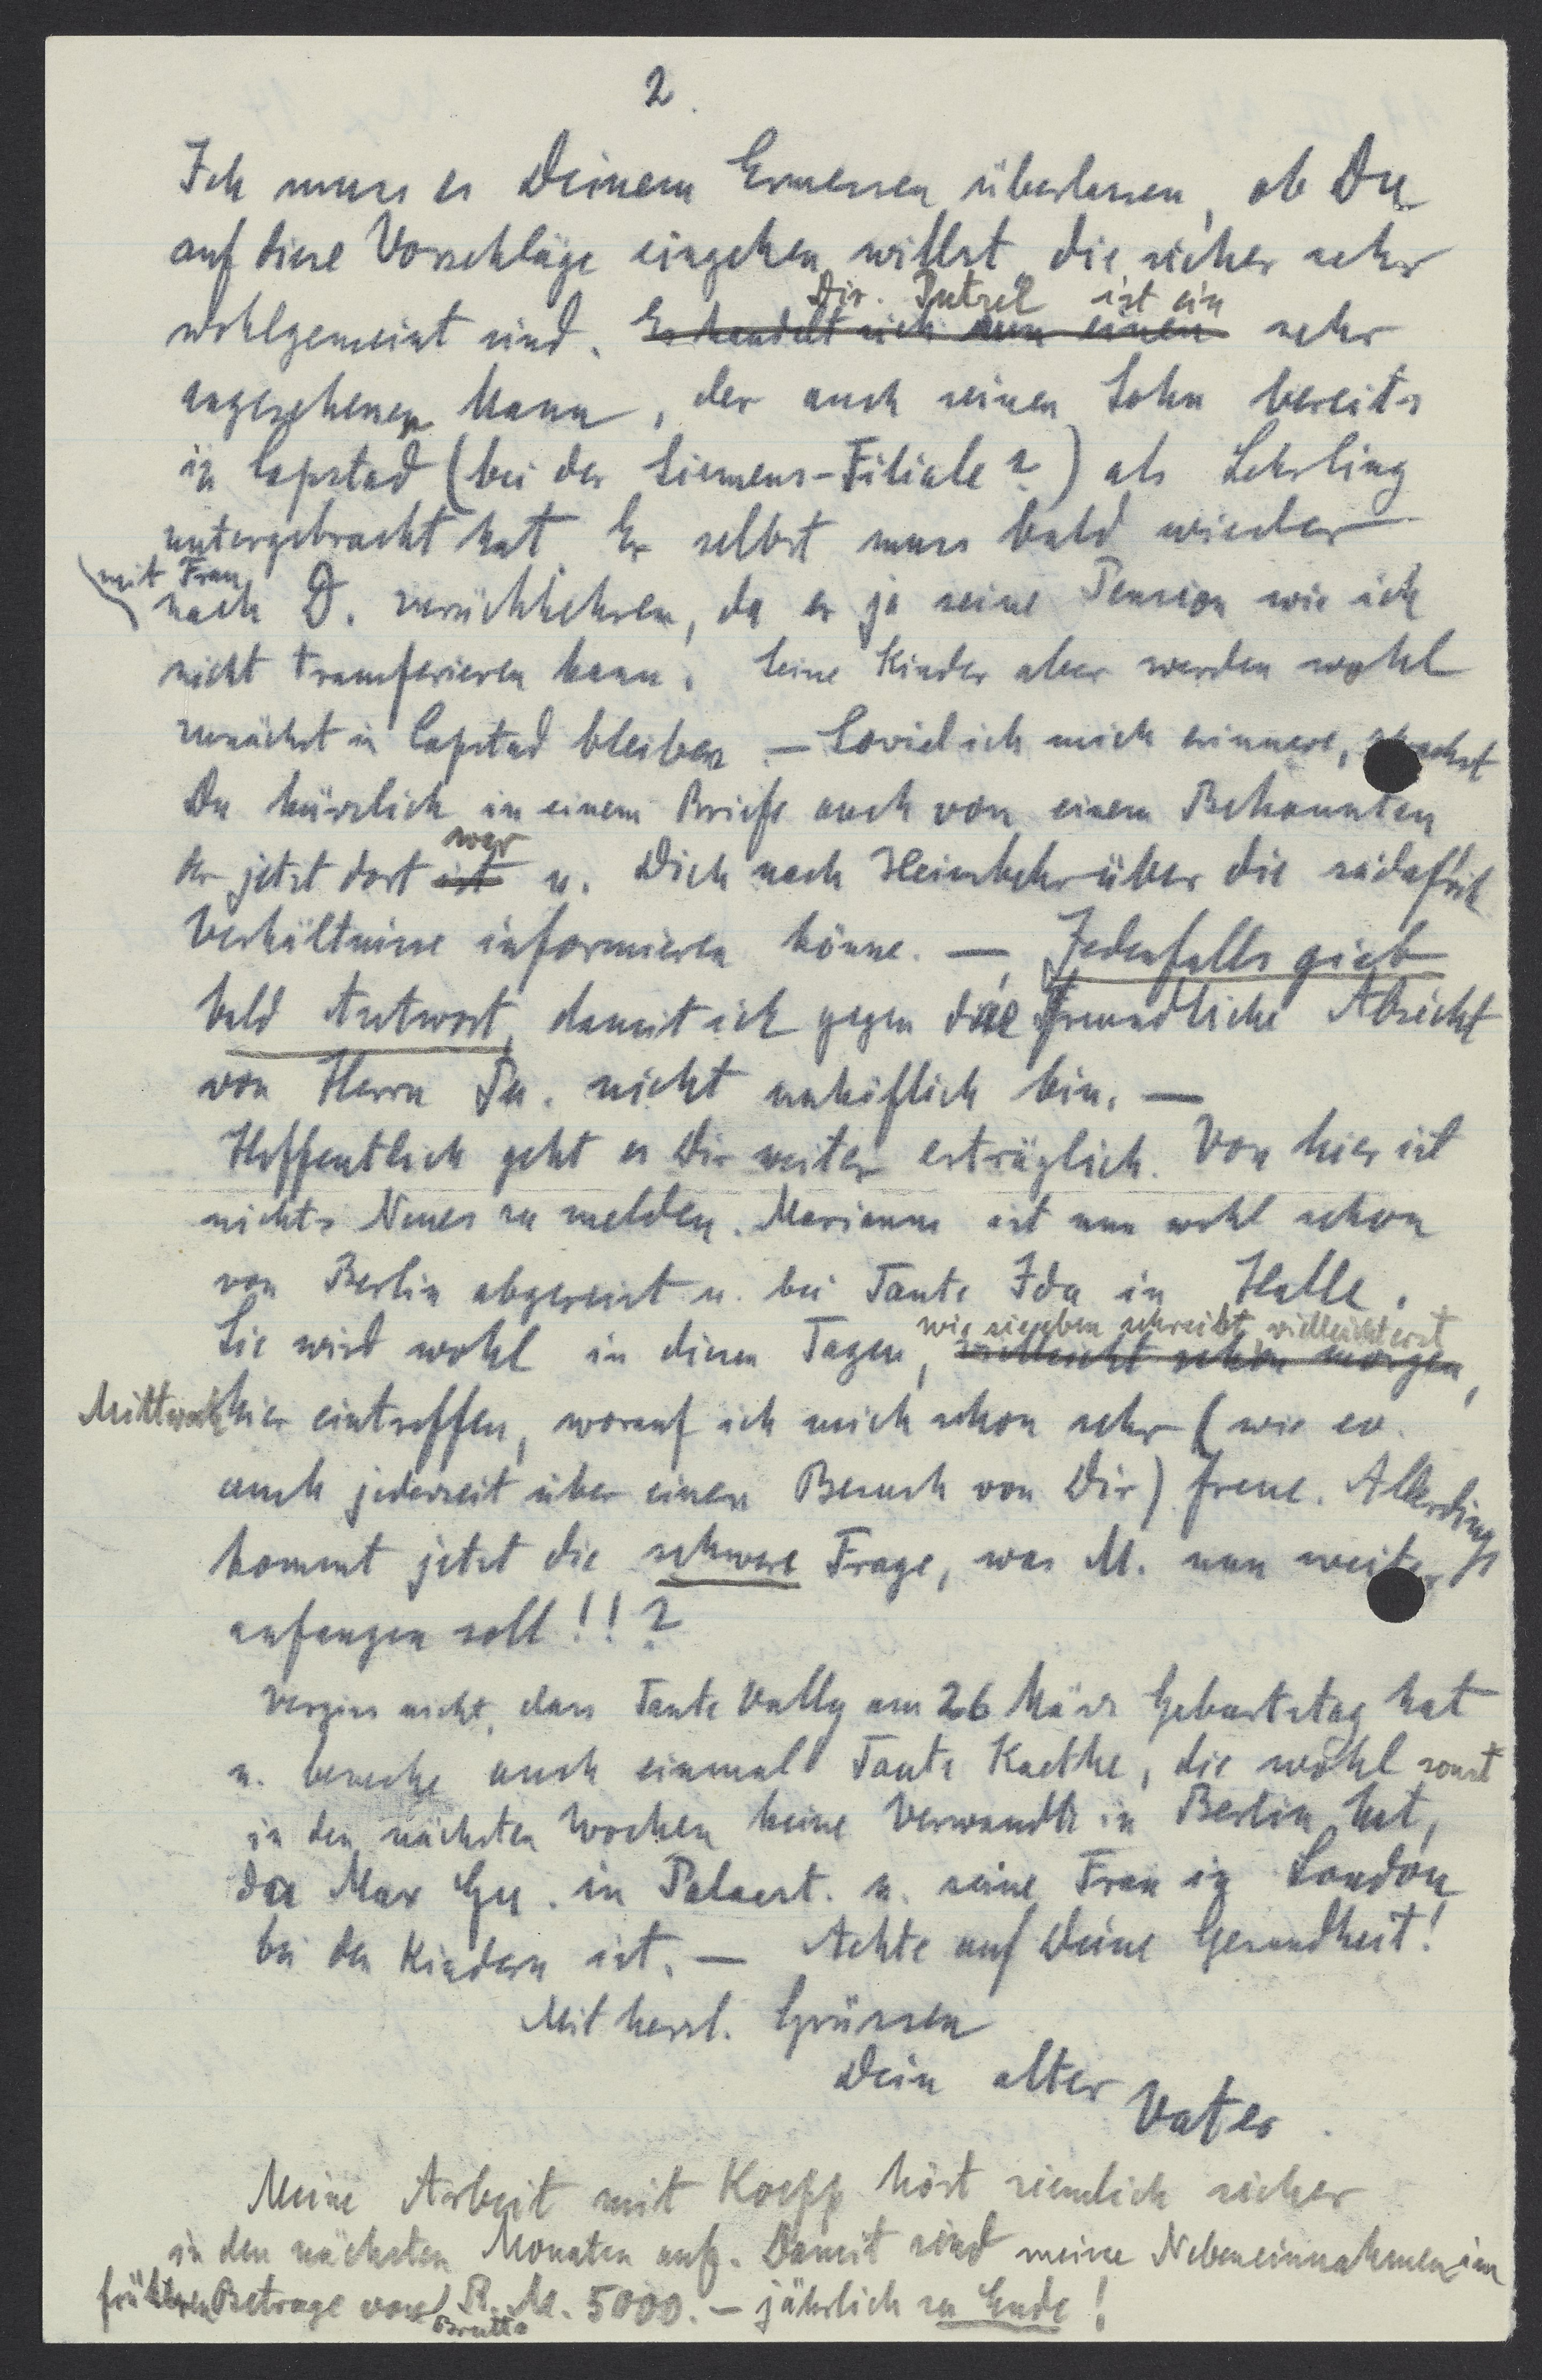 2.
Ich muss es Deinem Ermessen überlassen, ob Du
auf diese Vorschläge eingehen willst, die sicher sehr
wohlgemeint sind. Es handelt sich um einen Dir. Putzel ist ein sehr
angesehener Mann, der auch seinen Sohn bereits
in Capstad (bei der Siemens-Filiale?) als Lehrling
untergebracht hat. Er selbst muss bald wieder
mit Frau nach D. zurückkehren, da er ja seine Pension wie ich
nicht transferieren kann. Seine Kinder aber werden wohl
zunächst in Capstad bleiben. — Soviel ich mich erinnere,
Du kürzlich in einem Briefe auch von einem Bekannten
der jetzt dort ist war u. Dich nach Heimkehr über die südafrik
Verhältnisse informieren könne. — Jedenfalls gieb
bald Antwort, damit ich gegen die freundliche Absicht
von Herrn Pu. nicht unhöflich bin. —
Hoffentlich geht es Dir weiter erträglich. Von hier ist
nichts Neues zu melden. Marianne ist nun wohl schon
von Berlin abgereist u. bei Tante Ida in Halle.
Sie wird wohl in diesen Tagen, vielleicht schon morgen, wie sie eben schreibt vielleicht erst
Mittwoch hier eintreffen, worauf ich mich schon sehr (wie ev.
auch jederzeit über einen Besuch von Dir) freue. Allerdings
kommt jetzt die schwere Frage, was M. nun weiter
anfangen soll!!?
Vergiss nicht, dass Tante Vally am 26 März Geburtstag hat
u. besuche auch einmal Tante Kaethe, die wohl sonst
in den nächsten Wochen keine Verwandte in Berlin hat,
da Max Gu. in Palaest. u. seine Frau in London
bei den Kindern ist. — Achte auf Deine Gesundheit!
Mit herzl. Grüssen
Dein alter Vater.
Meine Arbeit mit Koepp hört ziemlich sicher
in den nächsten Monaten auf. Damit sind meine Nebeneinnahmen im
früheren Betrage von Brutto R. M. 5000.— jährlich zu Ende!